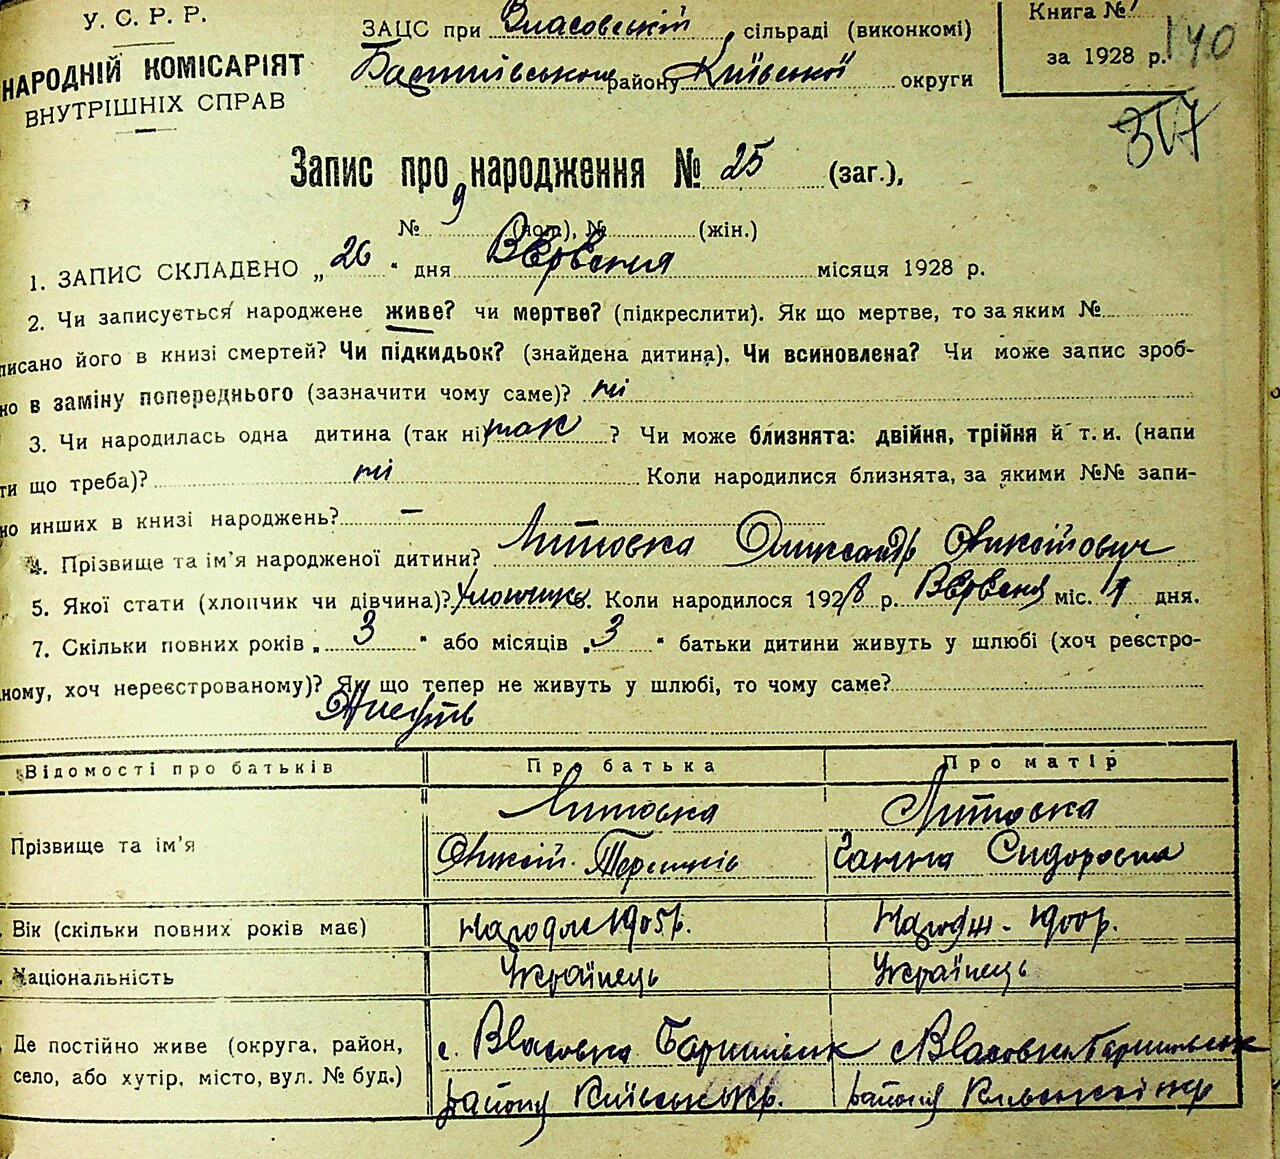 У. С. Р. Р.
НАРОДНІЙ КОМІСАРІЯТ
ВНУТРІШНІХ СПРАВ
ЗАЦС при Власовській сільраді (виконкомі)
району Київської округи
Книга №
за 1928 р. 140
317
Запис про народження № 25 (заг.),
№ 9 (чол), № (жін.)
1. ЗАПИС СКЛАДЕНО „26" дня Вервення місяця 1928 р.
2. Чи записується народжене живе? чи мертве? (підкреслити). Як що мертве, то за яким №
писано його в книзі смертей? Чи підкидьок? (знайдена дитина). Чи всиновлена? Чи може запис зроб-
но в заміну попереднього (зазначити чому саме)? ні
3. Чи народилась одна дитина (так ні) так ? Чи може близнята: двійня, трійня й т. и. (напи
ти що треба)? ні Коли народилися близнята, за якими №№ запи-
но инших в книзі народжень? —
4. Прізвище та ім'я народженої дитини? Литовка Олександр
5. Якої стати (хлопчик чи дівчина)? Хлопчик. Коли народилося 1928 р. Вервеня міс. 1 дня.
7. Скільки повних років „3" або місяців „3" батьки дитини живуть у шлюбі (хоч реєстро-
ному, хоч нереєстрованому)? Як що тепер не живуть у шлюбі, то чому саме?
Живуть
Відомості про батьків Про батька Про матір
Прізвище та ім'я Литовка Литовка
Ганна Сидоровна
Вік (скільки повних років має) 1905 р. Народж. 1900 р.
Національність Українець Українець
Де постійно живе (округа, район, с. Власовка с. Власовка
село, або хутір, місто, вул. № буд.) району району